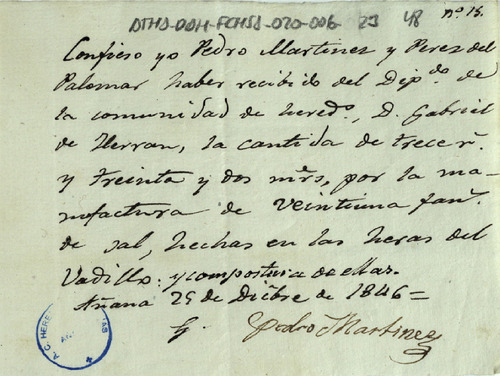 ATHA-DAH-FCHSA-020-006 23 48 nº. 15.
Confieso yo Pedro Martinez y Perez del
Palomar haber recibido del Dip.do de
la comunidad de hered.s, D. Gabriel
de Herran, la cantida de trece r.s
y treinta y dos mr̃s, por la ma-
nofactura de veintiuna fan.s
de sal, hechas en las heras del
Vadillo. y compostura de ellas.
Añana 25 de Dicbre de 1846=
Pedro Martinez
A.C. HERE